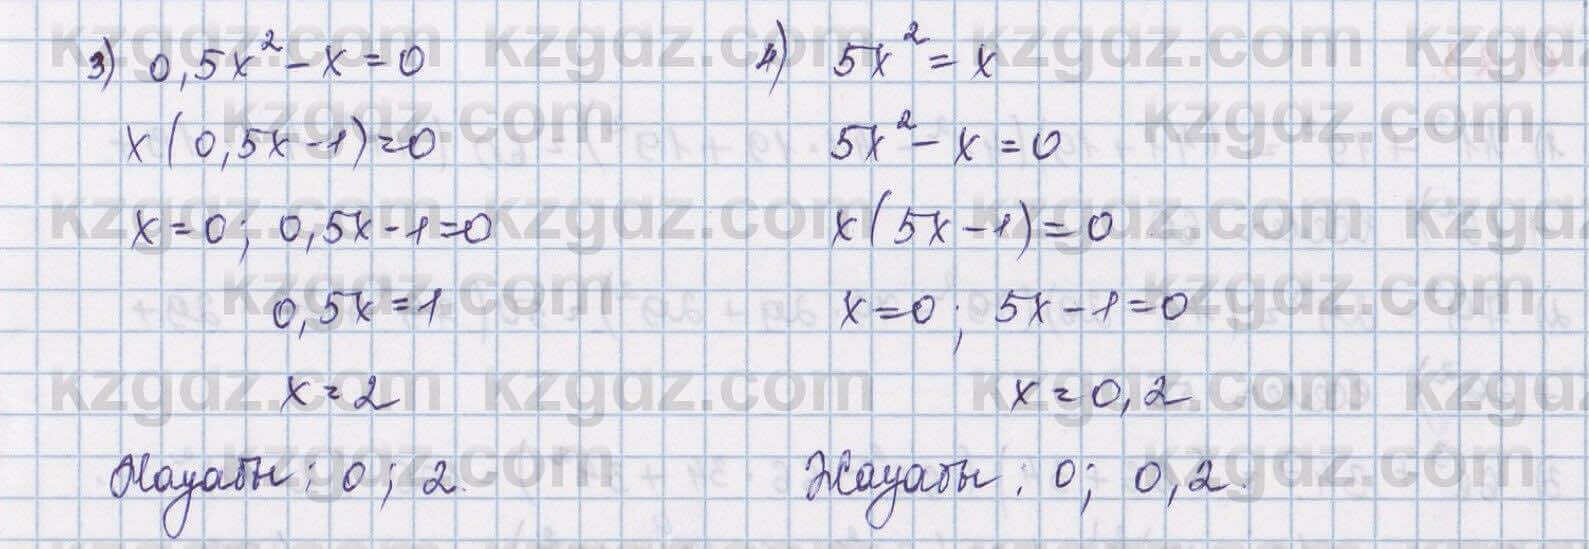 3) 0,5x² - x = 0
x(0,5x - 1) = 0
x = 0; 0,5x - 1 = 0
0,5x = 1
x = 2
Жауабы: 0; 2.
4) 5x² = x
5x² - x = 0
x(5x - 1) = 0
x = 0; 5x - 1 = 0
x = 0,2
Жауабы: 0; 0,2.
kzgdz.com